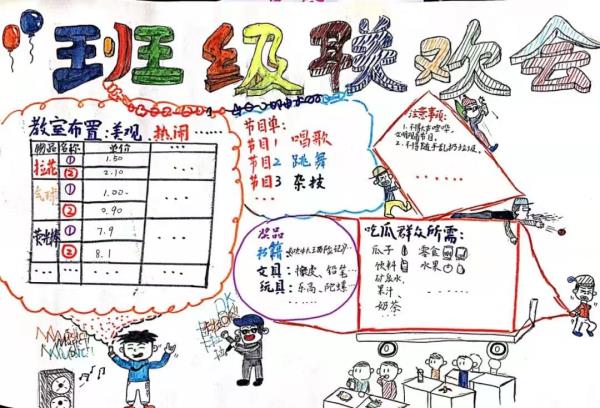 班级联欢会
教室布置:美观 热闹 ……
物品 名称 单价 ……
拉花 ① 1.50
② 2.10
气球 ① 1.00
② 0.90
荧光棒 ① 7.9
② 8.1
…… …… ……
节目单:
节目1 唱歌
节目2 跳舞
节目3 杂技
……
注意事项:
2.不得随手乱扔垃圾。
……
奖品
书籍
文具:橡皮、铅笔…
玩具:乐高、陀螺…
……
吃瓜群众所需:
瓜子 零食
饮料 水果
矿泉水、
果汁、
奶茶
……
MUSIC
MUSIC
MUSIC!!
OK